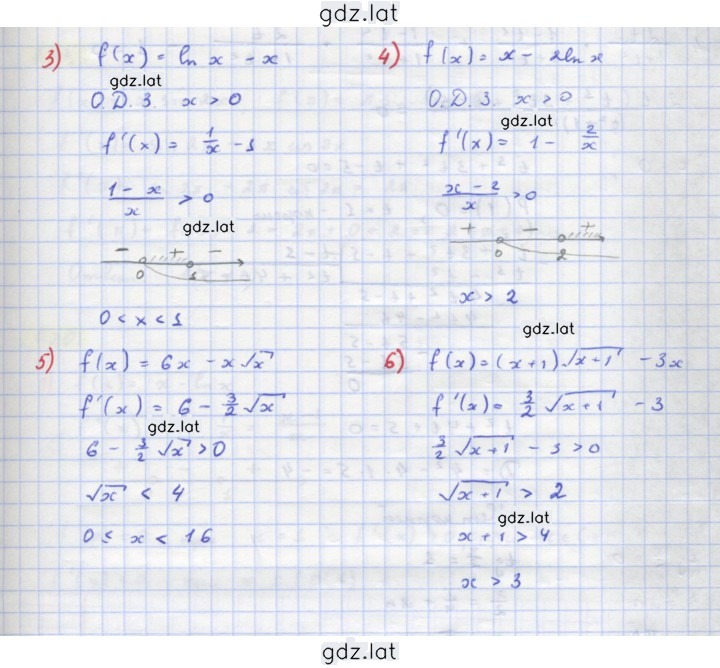 gdz.lat
3) f(x) = ln x - x
gdz.lat
О.Д.З. x > 0
f'(x) = 1/x - 1
(1 - x)/x > 0
gdz.lat
- + -
0 1
0 < x < 1
4) f(x) = x - 2ln x
О.Д.З. x > 0
gdz.lat
f'(x) = 1 - 2/x
(x - 2)/x > 0
+ - +
0 2
x > 2
gdz.lat
5) f(x) = 6x - x√x
f'(x) = 6 - 3/2 √x
gdz.lat
6 - 3/2 √x > 0
√x < 4
0 ≤ x < 16
6) f(x) = (x+1)√x+1 - 3x
f'(x) = 3/2 √x+1 - 3
3/2 √x+1 - 3 > 0
√x+1 > 2
gdz.lat
x + 1 > 4
x > 3
gdz.lat